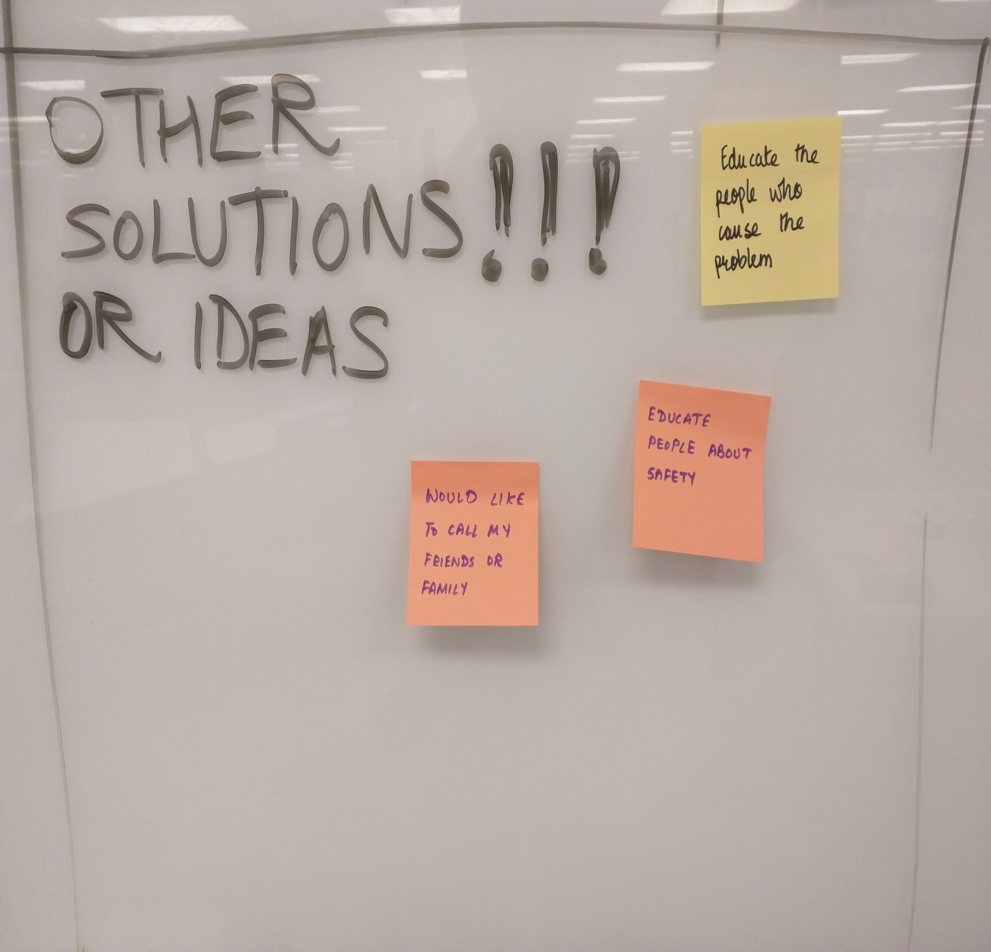 OTHER
SOLUTIONS!!!
OR IDEAS
Educate the
people who
cause the
problem
EDUCATE
PEOPLE ABOUT
SAFETY
WOULD LIKE
TO CALL MY
FRIENDS OR
FAMILY